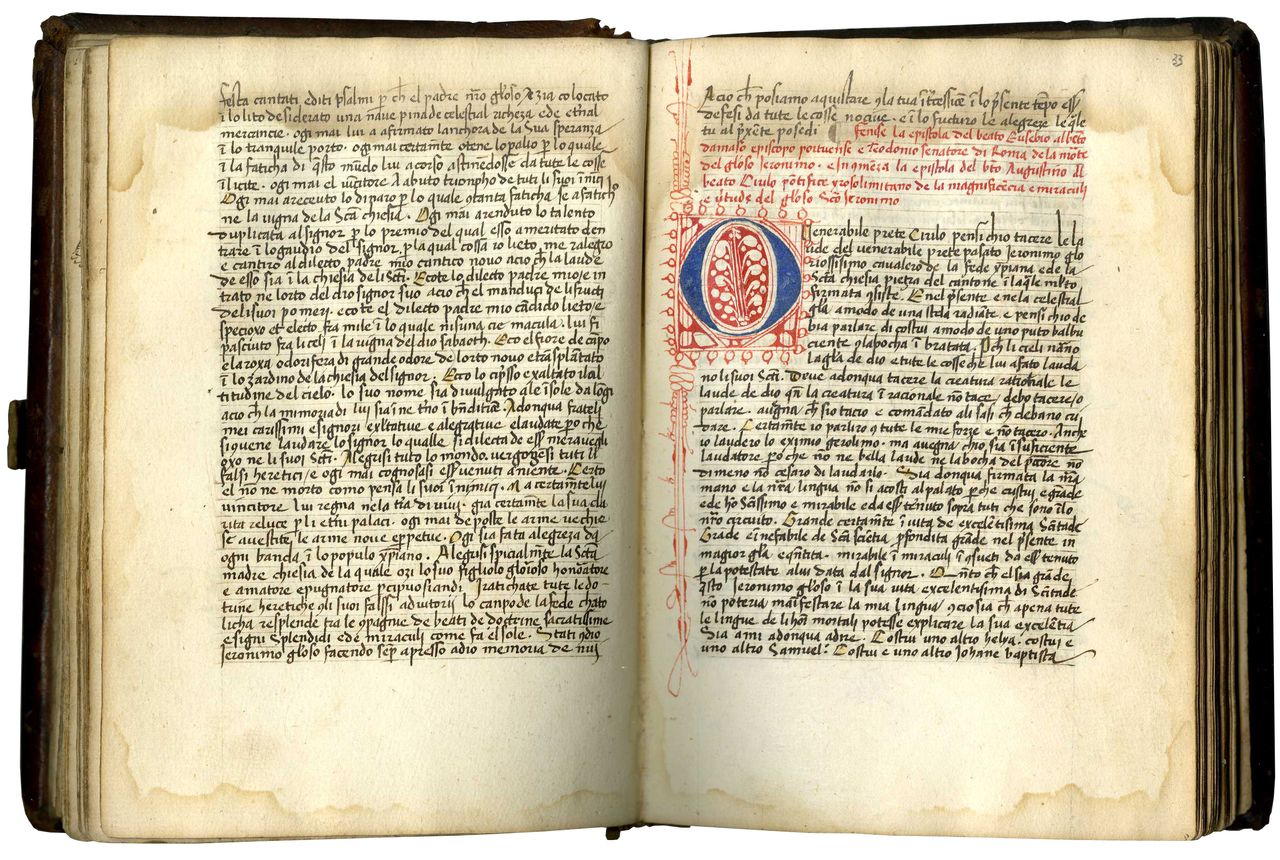 festa cantati editi psalmi p ch el padre mīo gloso Azia colocato
ī lo lito desiderato una nave pina de celestial richeza e de etnal
mercancie. ogi mai lui a afirmato lanchora de la Sua speranza
ī lo tranquile porto. ogi mai certamte otene lo palio p lo quale
ī la faticha di qsto mūdo lui a corso astinedosse da tute le cosse
ī licite. ogi mai el vīcitore A abuto trionpho de tuti li suoi īimici
Ogi mai arecevuto lo diparo p lo quale qtanta faticha se afatich
ne la vigna de la Scta chiesia. Ogi mai arenduto lo talento
duplicata al signor p lo premio del qual esso ameritato den
trare ī lo gaudio del signor p la qual cossa io lieto me ralegro
e cantiro al dilecto padre mīo cantico novo acio ch la laude
de esso sia ī la chiesia de li Scti. Ecote lo dilecto padre mio e in
trato ne lorto del dio signor suo acio ch el manduci de li fructi
de li suoi pomeri. ecote el dilecto padre mio cādido lieto e
specioxo et electo fra mile ī lo quale nisuna cie macula ī lui fi
pasciuto fra li celi ī la vigna del dio sabaoth. Eco el fiore de cāpo
e la roxa odorifera di grande odore de lorto novo e trasplātato
ī lo zardino de la chiesia del signor. Ecco lo cipsso exaltato ī la al
titudine del cielo. lo suo nome sia divulgato a le īsole da lōgi
acio ch la mimoria di lui sia ī ne tīno ī bnditioe. Adonqua frateli
mei carissimi e signori exltative e alegrative e laudate po che
si qvene laudare lo signor lo qualle si dilecta de ess meravegli
oxo ne li suoi Scti. Alegrisi tuto lo mondo. vergogēsi tuti li
falsi heretici e ogi mai cognosasi ess venuti a niente. Certo
el nō ne morto como pensa li suoi īnimici. Ma certamte lui
vincitore lui regna nela tra di vivi. gia certamte la sua cla
rita reluce p li etni palaci. ogi mai deposte le arme vechie
se a vestite le arme nove e ppetue. Ogi sia fata alegreza da
ogni banda ī lo populo xpiano. Alegrisi spicialmte la Scta
madre chiesia de la quale ozi lo suo figliolo glorioso honoratore
e amatore epugnatore pcipuo si andi. Iatichate tute le do-
trine heretiche qli suoi falssi adiutorii lo canpo de la fede chato
licha resplende fra le qpagnie de beati de doctrine sacratissime
e signi splendidi e de miraculi come fa el sole. Stati qdio
Jeronimo gloso facendo sep apresso a dio memoria de nui
Acio ch posiamo aquistare qla tua ītcessioē ī lo psente tēpo ess
defesi da tute le cosse nocive. e ī lo futuro le alegreze le qle
tu al pxēte posedi fenise la epistola del beato Eusebio al beato
damaso episcopo portuense e Teodonio senatore di Roma de la mōte
del gloso ieronimo. e Inqmēza la epistola del bto Augustino al
beato Cirilo pōtifice yxrosolimitano de la magnificēcia e miraculi
e vtude del gloso Sco Jeronimo
Venerabile prete Cirilo pensi chio tacere le la
ude del venerabile prete pasato Jeronimo glo
riossissimo cavalero de la fede xpiana e de la
Scta chiesia pietra del cantone ī la qle molto
firmata qsiste. E nel psente e ne la celestial
gla amodo de una stela radiate e pensi chio de
bia parlare di costui a modo de uno puto balbu
ciente qla bocha ī bratata. Pch li cieli nāno
la gla de dio e tute le cosse che lui a fato lauda
no li suoi Scti. Deve adonqua tacere la creatura rationale le
laude de dio qn la creatura ī racionale nō tace. debo tacere o
parlare. avegna ch sio tacio e comādato ali sassi ch debano cri
dare. Certamte io parlaro q tute le mie forze e nō tacero. Anche
io laudero lo eximio gerolimo. ma avegna chio sia īsuficiente
laudatore po che nō ne bella laude ne la bocha del pcatore nō
dimeno nō cesaro di laudarlo. Sia donqua firmata la nra
mano e la nra lingua nō si acosti al palato pche custui e grāde
e de ho Scissimo e mirabile e da ess tenuto sopra tuti che sono ī lo
nro circuito. Grande certamte ī vita de excelētissima Sctitade
Grade e inefabile de Scta sciētia pfondita grade nel psente in
magior gla e qntita. mirabile ī miraculi ī qsueti da ess tenuto
p la potestate a lui data dal signor. Qnto ch el sia grāde
qsto Jeronimo gloso ī la sua vita excelentisima di Sctitade
nō poteria manifestare la mia lingua qcio sia ch apena tute
le lingue de li homī mortali potesse explicare la sua excelētia
Sia a mi adonqua a dire. Costui uno altro helya. costui e
uno altro Samuel. Costui e uno altro Johane baptista
33